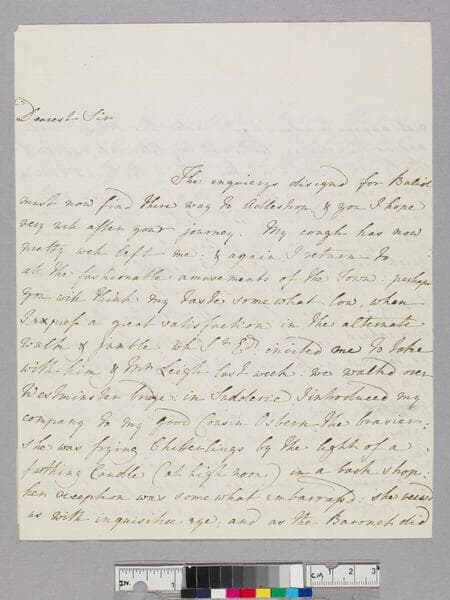 Dearest Sir
The enquierys disignd for Baliol
must now find there way to Adleshop & you I hope
very well after your journey. My cough has now
pretty well left me: & again I return to
all the fashionable amusements of the Town: perhaps
you will think my taste somewhat low, when
I express a great satisfaction in the alternate
walk & jumble wh Sr Ed: invited me to take
with him & Mrs Leigh last week: we walkd over
Westminster bridge: in Sadderic I introduced my
company to my good Cousin Osbern the brasier:
she was frying Chitterlings by the light of a
farthing Candle (at high noon) in a back shop:
her reception was somewhat embarrass'd: she view'd
us with inquisitive eye; and as the Baronet did
IN. 1
CM 1 2 3